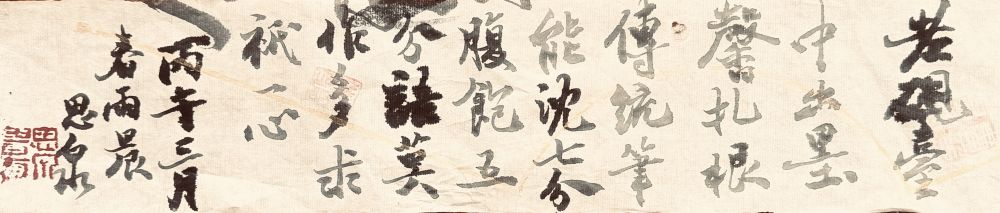 老硯臺
中出墨
馨扎根
傳統筆
能沈七分
腹飽五
分語莫
作多求
祇一心
丙午三月
春雨晨
思泉